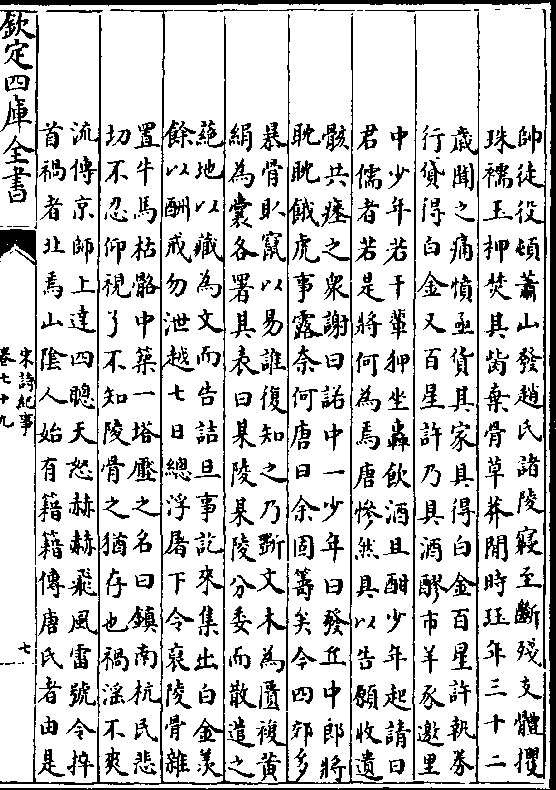 帥徒役頓蕭山發趙氏諸陵寢至斷殘支體攫
珠襦玉柙焚其胔棄骨草莽間時珏年三十二
歲聞之痛憤亟貨其家具得白金百星許執券
行貸得白金又百星許乃具酒醪市羊豕邀里
中少年若干輩狎坐轟飲酒且酣少年起請曰
君儒者若是將何為焉唐慘然具以告願收遺
骸共瘞之衆謝曰諾中一少年曰發丘中郎將
耽耽餓虎事露奈何唐曰余固籌矣今四郊多
暴骨取竄以易誰復知之乃斵文木為匱複黄
絹為囊各署其表曰某陵某陵分委而散遣之
蕝地以藏為文而告詰旦事訖來集出白金羡
餘以酬戒勿泄越七日總浮屠下令裒陵骨雜
置牛馬枯骼中築一塔壓之名曰鎮南杭民悲
切不忍仰視了不知陵骨之猶存也禍淫不爽
流傳京師上達四聰天怒赫赫飛風雷號令捽
首禍者北焉山陰人始有籍籍傳唐氏者由是
欽定四庫全書
宋詩紀事
卷七十九
七